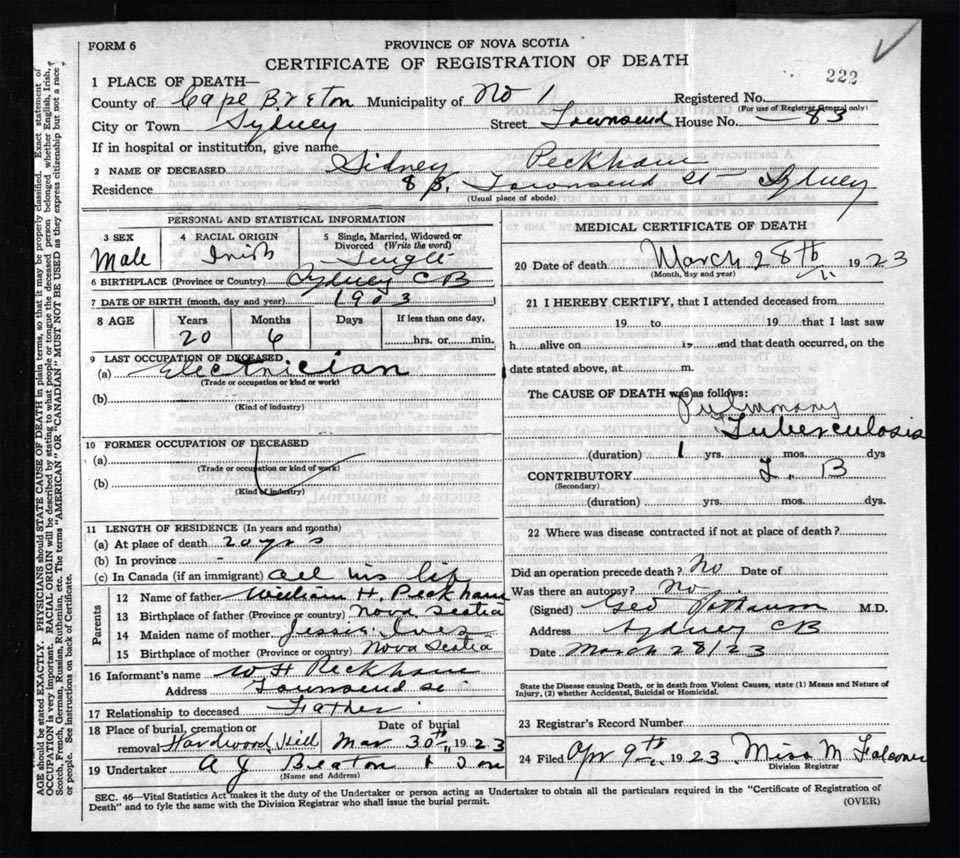 FORM 6
PROVINCE OF NOVA SCOTIA
CERTIFICATE OF REGISTRATION OF DEATH
222
1 PLACE OF DEATH—
County of Cape Breton Municipality of No 1 Registered No.
(For use of Registrar General only)
City or Town Sydney Street Townsend House No. 83
If in hospital or institution, give name
2 NAME OF DECEASED Sidney Peckham
Residence 83 Townsend St Sydney
(Usual place of abode)
PERSONAL AND STATISTICAL INFORMATION
3 SEX
Male
4 RACIAL ORIGIN
Irish
5 Single, Married, Widowed or
Divorced (Write the word)
Single
6 BIRTHPLACE (Province or Country) Sydney CB
7 DATE OF BIRTH (month, day and year) 1903
8 AGE Years Months Days If less than one day,
20 6 hrs. or min.
9 LAST OCCUPATION OF DECEASED
(a) Electrician
(Trade or occupation or kind or work)
(b)
(Kind of industry)
10 FORMER OCCUPATION OF DECEASED
(a)
(Trade or occupation or kind of work)
(b)
(Kind of industry)
11 LENGTH OF RESIDENCE (In years and months)
(a) At place of death 20 yrs
(b) In province -
(c) In Canada (if an immigrant) all his life
Parents
12 Name of father William H. Peckham
13 Birthplace of father (Province or country) Nova Scotia
14 Maiden name of mother Jessie Ives
15 Birthplace of mother (Province or country) Nova Scotia
16 Informant's name W H Peckham
Address Townsend St
17 Relationship to deceased Father
18 Place of burial, cremation or
removal Hardwood Hill
Date of burial
Mar 30th 1923
19 Undertaker A J Beaton & Son
(Name and Address)
MEDICAL CERTIFICATE OF DEATH
20 Date of death March 28th 1923
(Month, day and year)
21 I HEREBY CERTIFY, that I attended deceased from
19 to 19 that I last saw
h alive on 19 and that death occurred, on the
date stated above, at m.
The CAUSE OF DEATH was as follows:
Pulmonary
Tuberculosis
(duration) 1 yrs. mos. dys
CONTRIBUTORY T. B
(Secondary)
(duration) yrs. mos. dys.
22 Where was disease contracted if not at place of death?
Did an operation precede death? No Date of
Was there an autopsy? No
(Signed) Geo M.D.
Address Sydney CB
Date March 28/23
State the Disease causing Death, or in death from Violent Causes, state (1) Means and Nature of
Injury, (2) whether Accidental, Suicidal or Homicidal.
23 Registrar's Record Number
24 Filed Apr 9th 1923 Miss M Falconer
Division Registrar
SEC. 46—Vital Statistics Act makes it the duty of the Undertaker or person acting as Undertaker to obtain all the particulars required in the "Certificate of Registration of
Death" and to fyle the same with the Division Registrar who shall issue the burial permit.
(OVER)
AGE should be stated EXACTLY. PHYSICIANS should STATE CAUSE OF DEATH in plain terms, so that it may be properly classified. Exact statement of
OCCUPATION is very important. RACIAL ORIGIN will be described by stating to what people or tongue the deceased person belonged whether English, Irish,
Scotch, French, German, Russian, Ruthenian, etc. The terms "AMERICAN" OR "CANADIAN" MUST NOT BE USED as they express citizenship but not a race
or people. See instructions on back of Certificate.